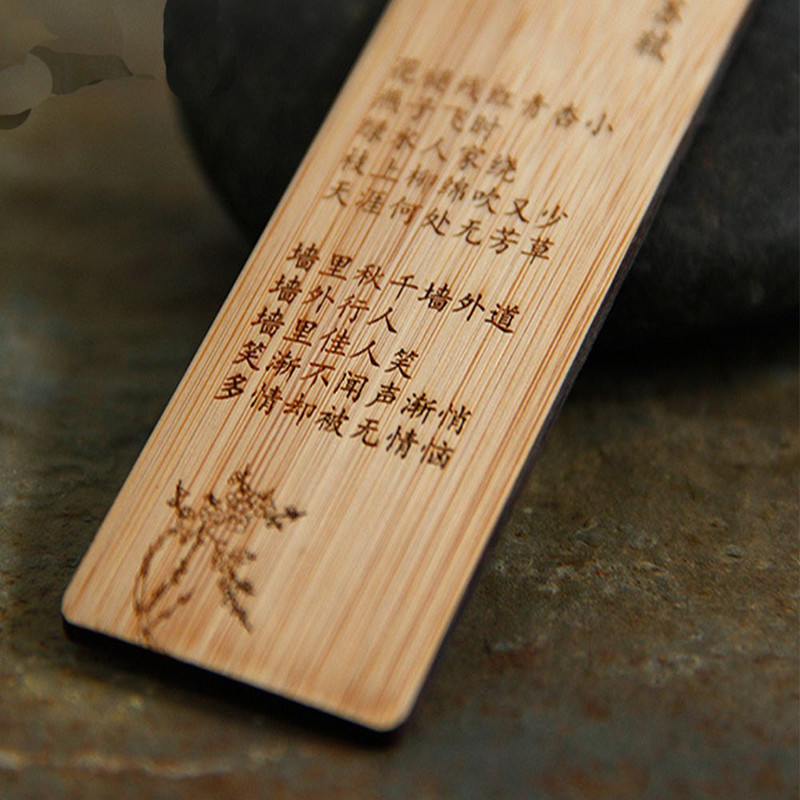 苏轼
花褪残红青杏小
燕子飞时
绿水人家绕
枝上柳绵吹又少
天涯何处无芳草
墙里秋千墙外道
墙外行人
墙里佳人笑
笑渐不闻声渐悄
多情却被无情恼